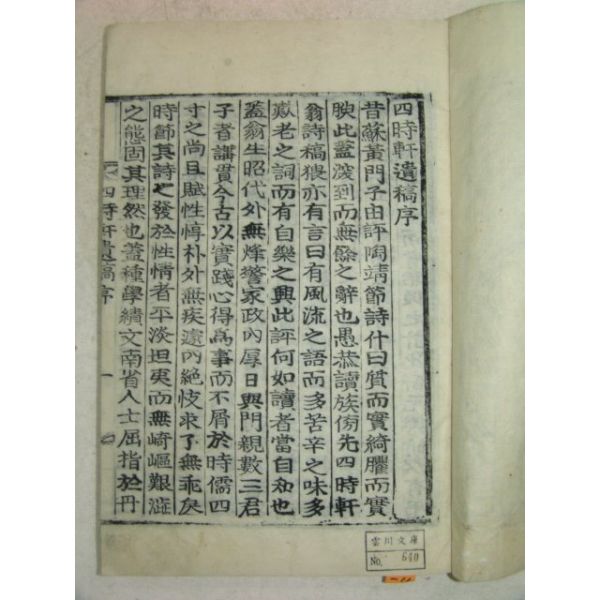 四時軒遺稿序
昔蘇黃門子由評陶靖節詩什曰質而實綺臞而實
腴此蓋深到而無餘之辭也愚恭讀族傍先四時軒
翁詩稿猥亦有言曰有風流之語而多苦辛之味多
嶽老之詞而有自樂之興此評何如讀者當自知也
蓋翁生昭代外無烽警家政內厚日與門親數三君
子者講貫今古以實踐心得爲事而不屑於時儒四
寸之尚且賦性惇朴外無疾遽內絶忮求了無乖戾
時節其詩之發於性情者平淡坦夷而無崎嶇艱澁
之態固其理然也蓋種學績文南省人士屈指於丹
四時軒遺稿序
一
雲川文庫
No. 640